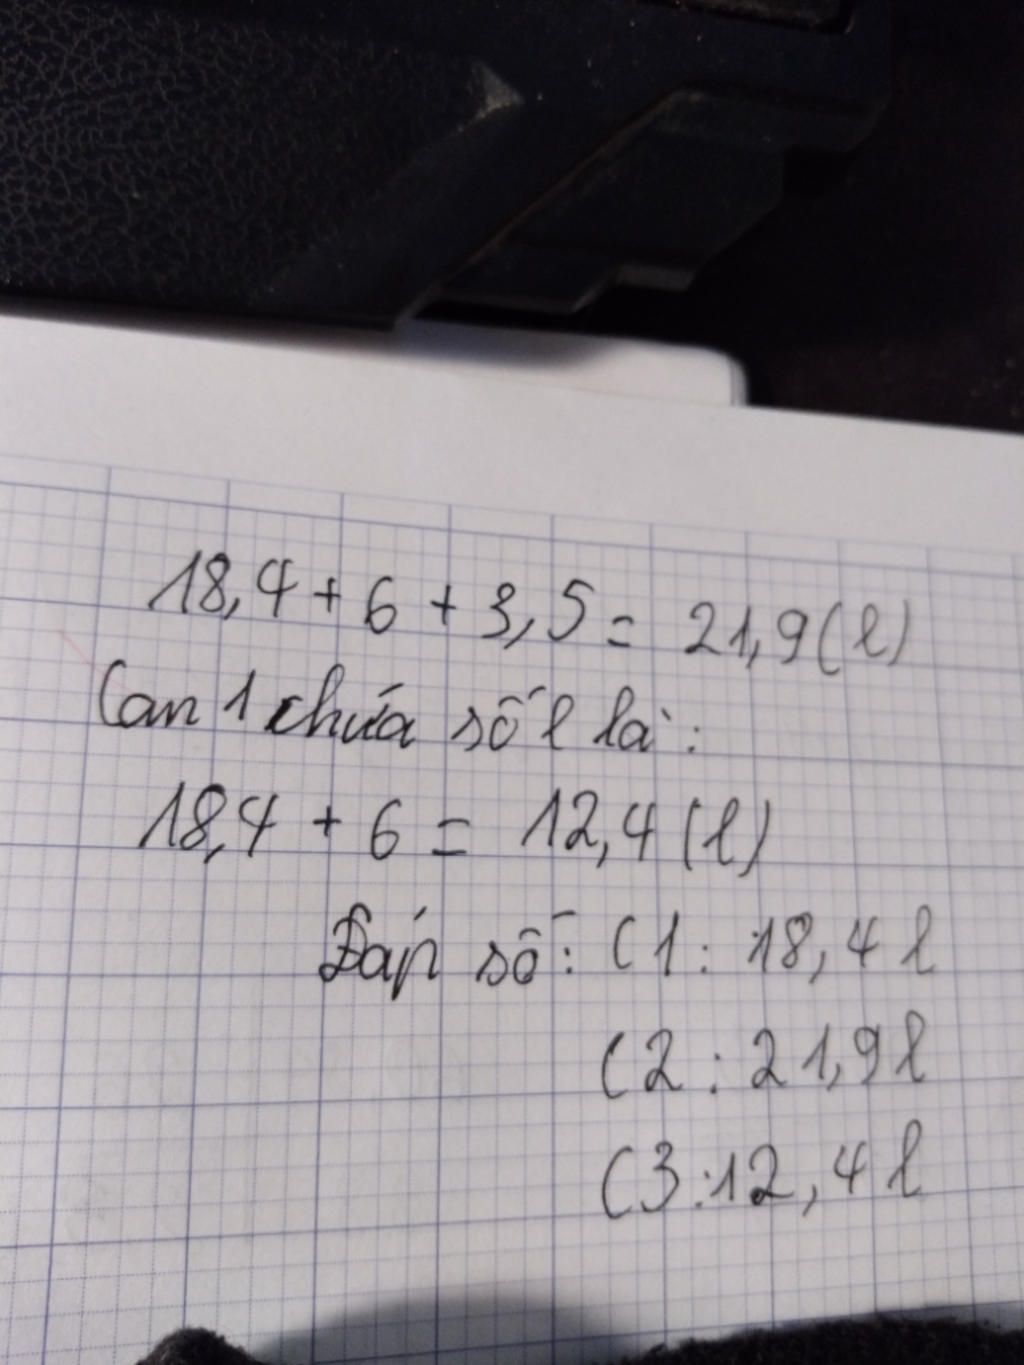 18,4 + 6 + 3,5 = 21,9 (l)
Can 1 chứa số l là:
18,4 + 6 = 12,4 (l)
Đáp số: C1: 18,4 l
C2: 21,9 l
C3: 12,4 l